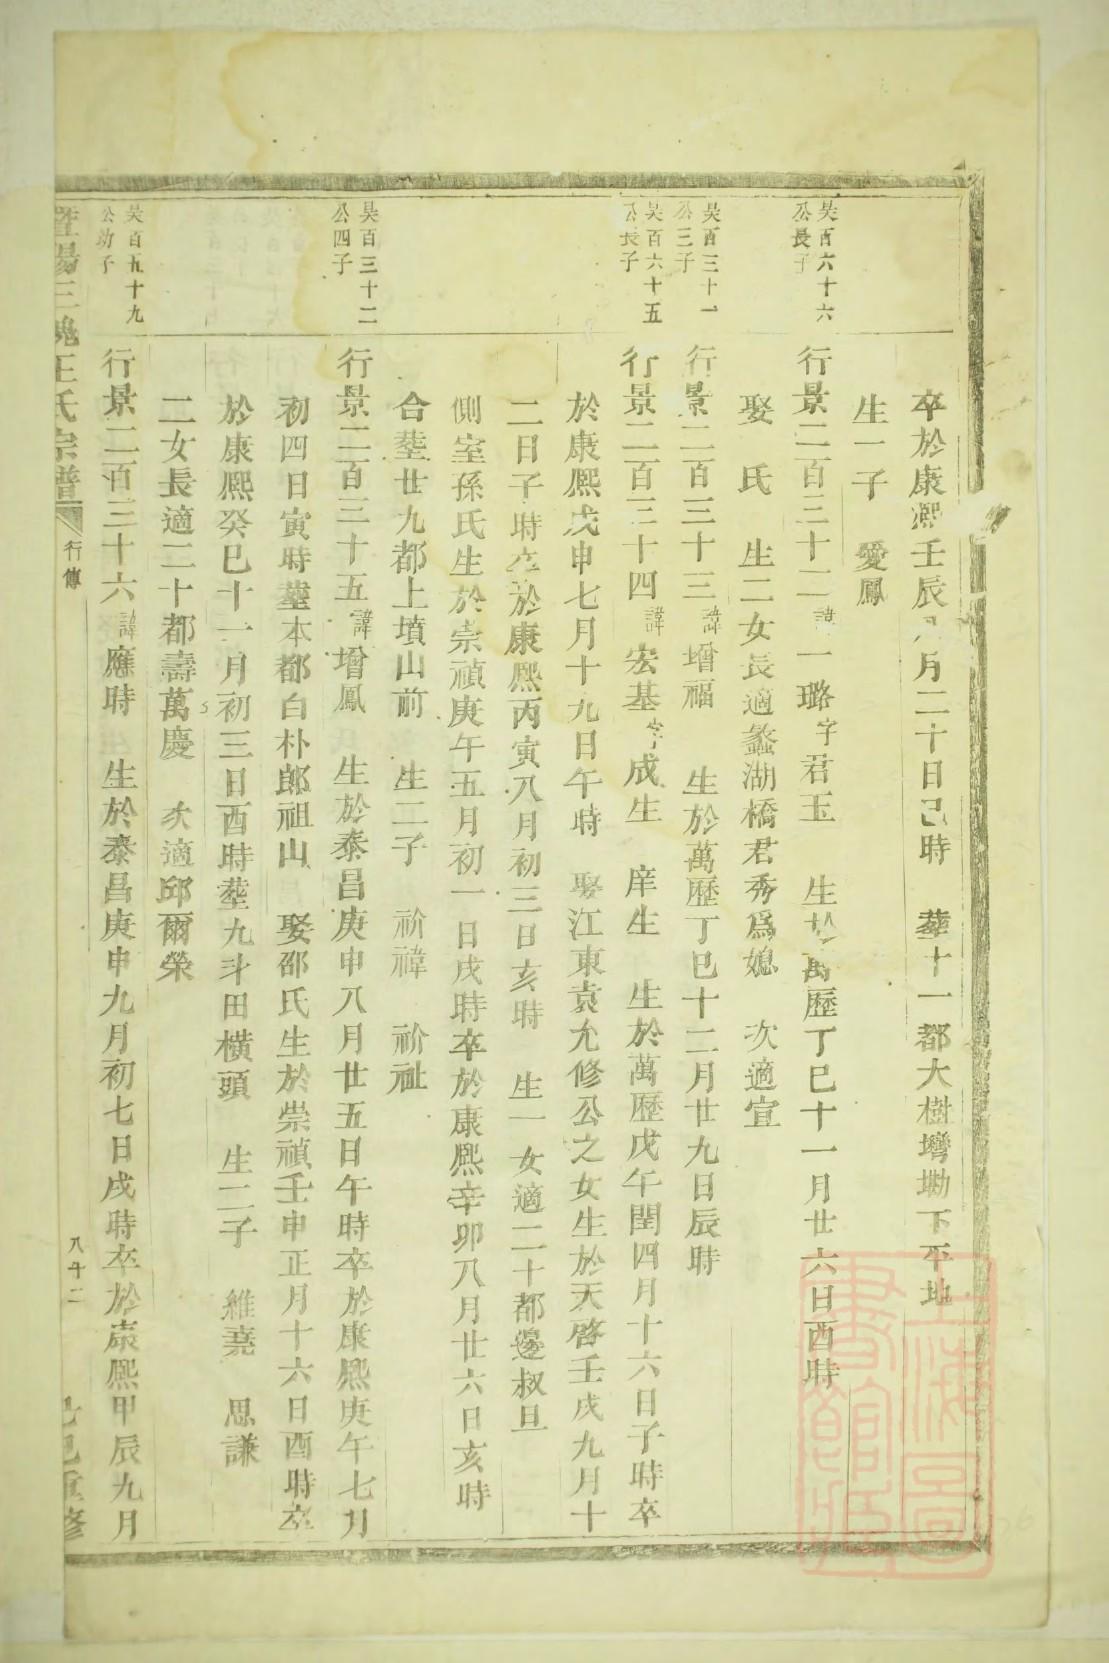 卒於康熙壬辰八月二十日己時　葬十一都大樹塆墈下平地
生一子　愛鳳
吴百六十六
公長子
行景二百三十二諱一璐字君玉　生於萬歷丁巳十一月廿六日酉時
娶　氏　生二女長適蠡湖橋君秀爲媳　次適宣
吴百三十一
公三子
行景二百三十三諱增福　生於萬歷丁巳十二月廿九日辰時
吴百六十五
公長子
行景二百三十四諱宏基字成生　庠生　生於萬歷戊午閏四月十六日子時卒
於康熙戊申七月十九日午時　娶江東袁允修公之女生於天啓壬戌九月十
二日子時卒於康熙丙寅八月初三日亥時　生一女適二十都邊叔旦
側室孫氏生於崇禎庚午五月初一日戌時卒於康熙辛卯八月廿六日亥時
合塟廿九都上墳山前　生二子　祄禕　祄祉
吴百三十二
公四子
行景二百三十五諱增鳳　生於泰昌庚申八月廿五日午時卒於康熙庚午七月
初四日寅時塟本都白朴郎祖山　娶邵氏生於崇禎壬申正月十六日酉時卒
於康熙癸巳十一月初三日酉時塟九斗田橫頭　生二子　維堯　思謙
二女長適二十都壽萬慶　次適邱爾榮
吴百五十九
公幼子
行景二百三十六諱應時　生於泰昌庚申九月初七日戌時卒於康熙甲辰九月
暨陽三槐王氏宗譜　行傳　八十二　己巳重修
上海圖書館藏